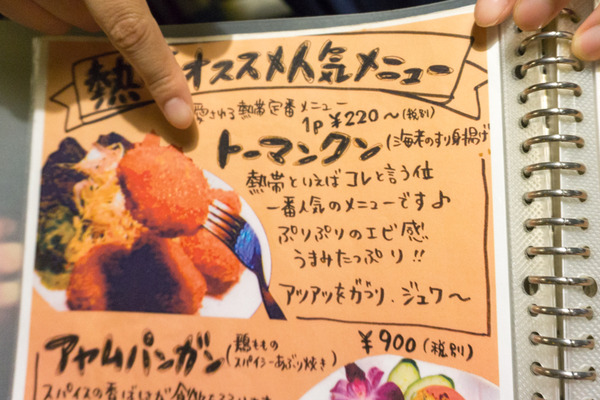 熱 オススメ人気メニュー
愛される熱帯定番メニュー
1p ¥220〜(税別)
トーマンクン(海老のすり身揚げ
熱帯といえばコレと言う位
一番人気のメニューですよ
ぷりぷりのエビ感
うまみたっぷり!!
アツアツをガブリ、ジュワ〜
アヤムパンガン(鶏ももの
スパイシーあぶり焼き)
¥900(税別)
スパイスの香ばしさが